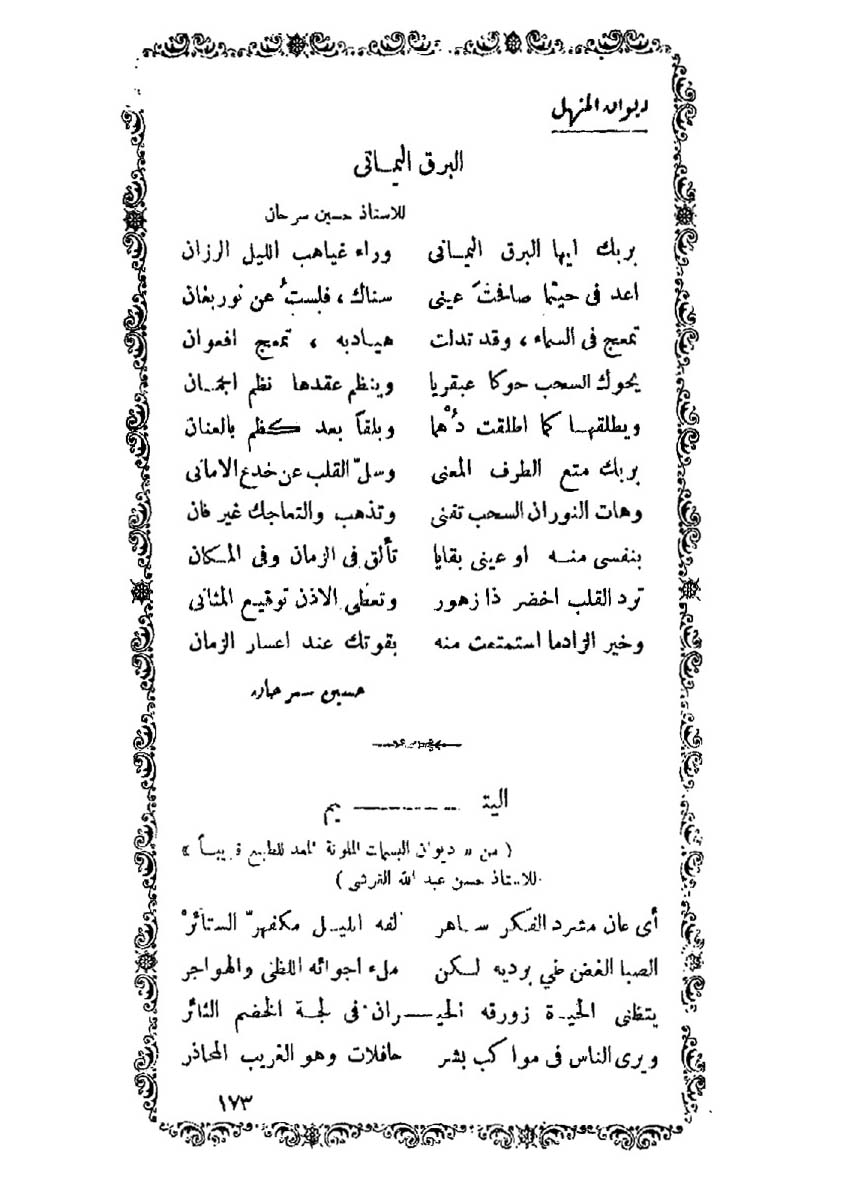 ديوان المنهل
البرق اليمانى
للاستاذ حسين سرحان
بربك ايها البرق اليمانى وراء غياهب الليل الرزان
اعد فى حيثما صافحت عينى سناك ، فلستُ عن نور بغان
تمعج فى السماء ، وقد تدلت هيادبه ، تمعج افعوان
يحوك السحب حوكا عبقريا وينظم عقدها نظم الجمان
ويطلقها كما اطلقت دُهْما وبلقاً بعد كظم بالعنان
بربك متع الطرف المعنى وسلّ القلب عن خدع الامانى
وهات النور ان السحب تفنى وتذهب والتماجك غير فان
بنفسى منه او عينى بقايا تألق فى الزمان وفى المكان
ترد القلب اخضر ذا زهور وتعطى الاذن توقيع المثانى
وخير الزاد ما استمتعت منه بقوتك عند اعسار الزمان
حسين سرحان
اليتـــيم
( من « ديوان البسمات الملونة المعد للطبع قريبــاً »
للاستاذ حسن عبد الله القرشى )
أى عان مشرد الفكر ساهر لفه الليل مكفهرّ الستائرْ
الصبا الغض طي برديه لكن ملء اجوائه اللظى والهواجر
يتظنى الحياة زورقه الحيـــران فى لجة الخضم الثائر
ويرى الناس فى مواكب بشر حافلات وهو الغريب المحاذر
١٧٣